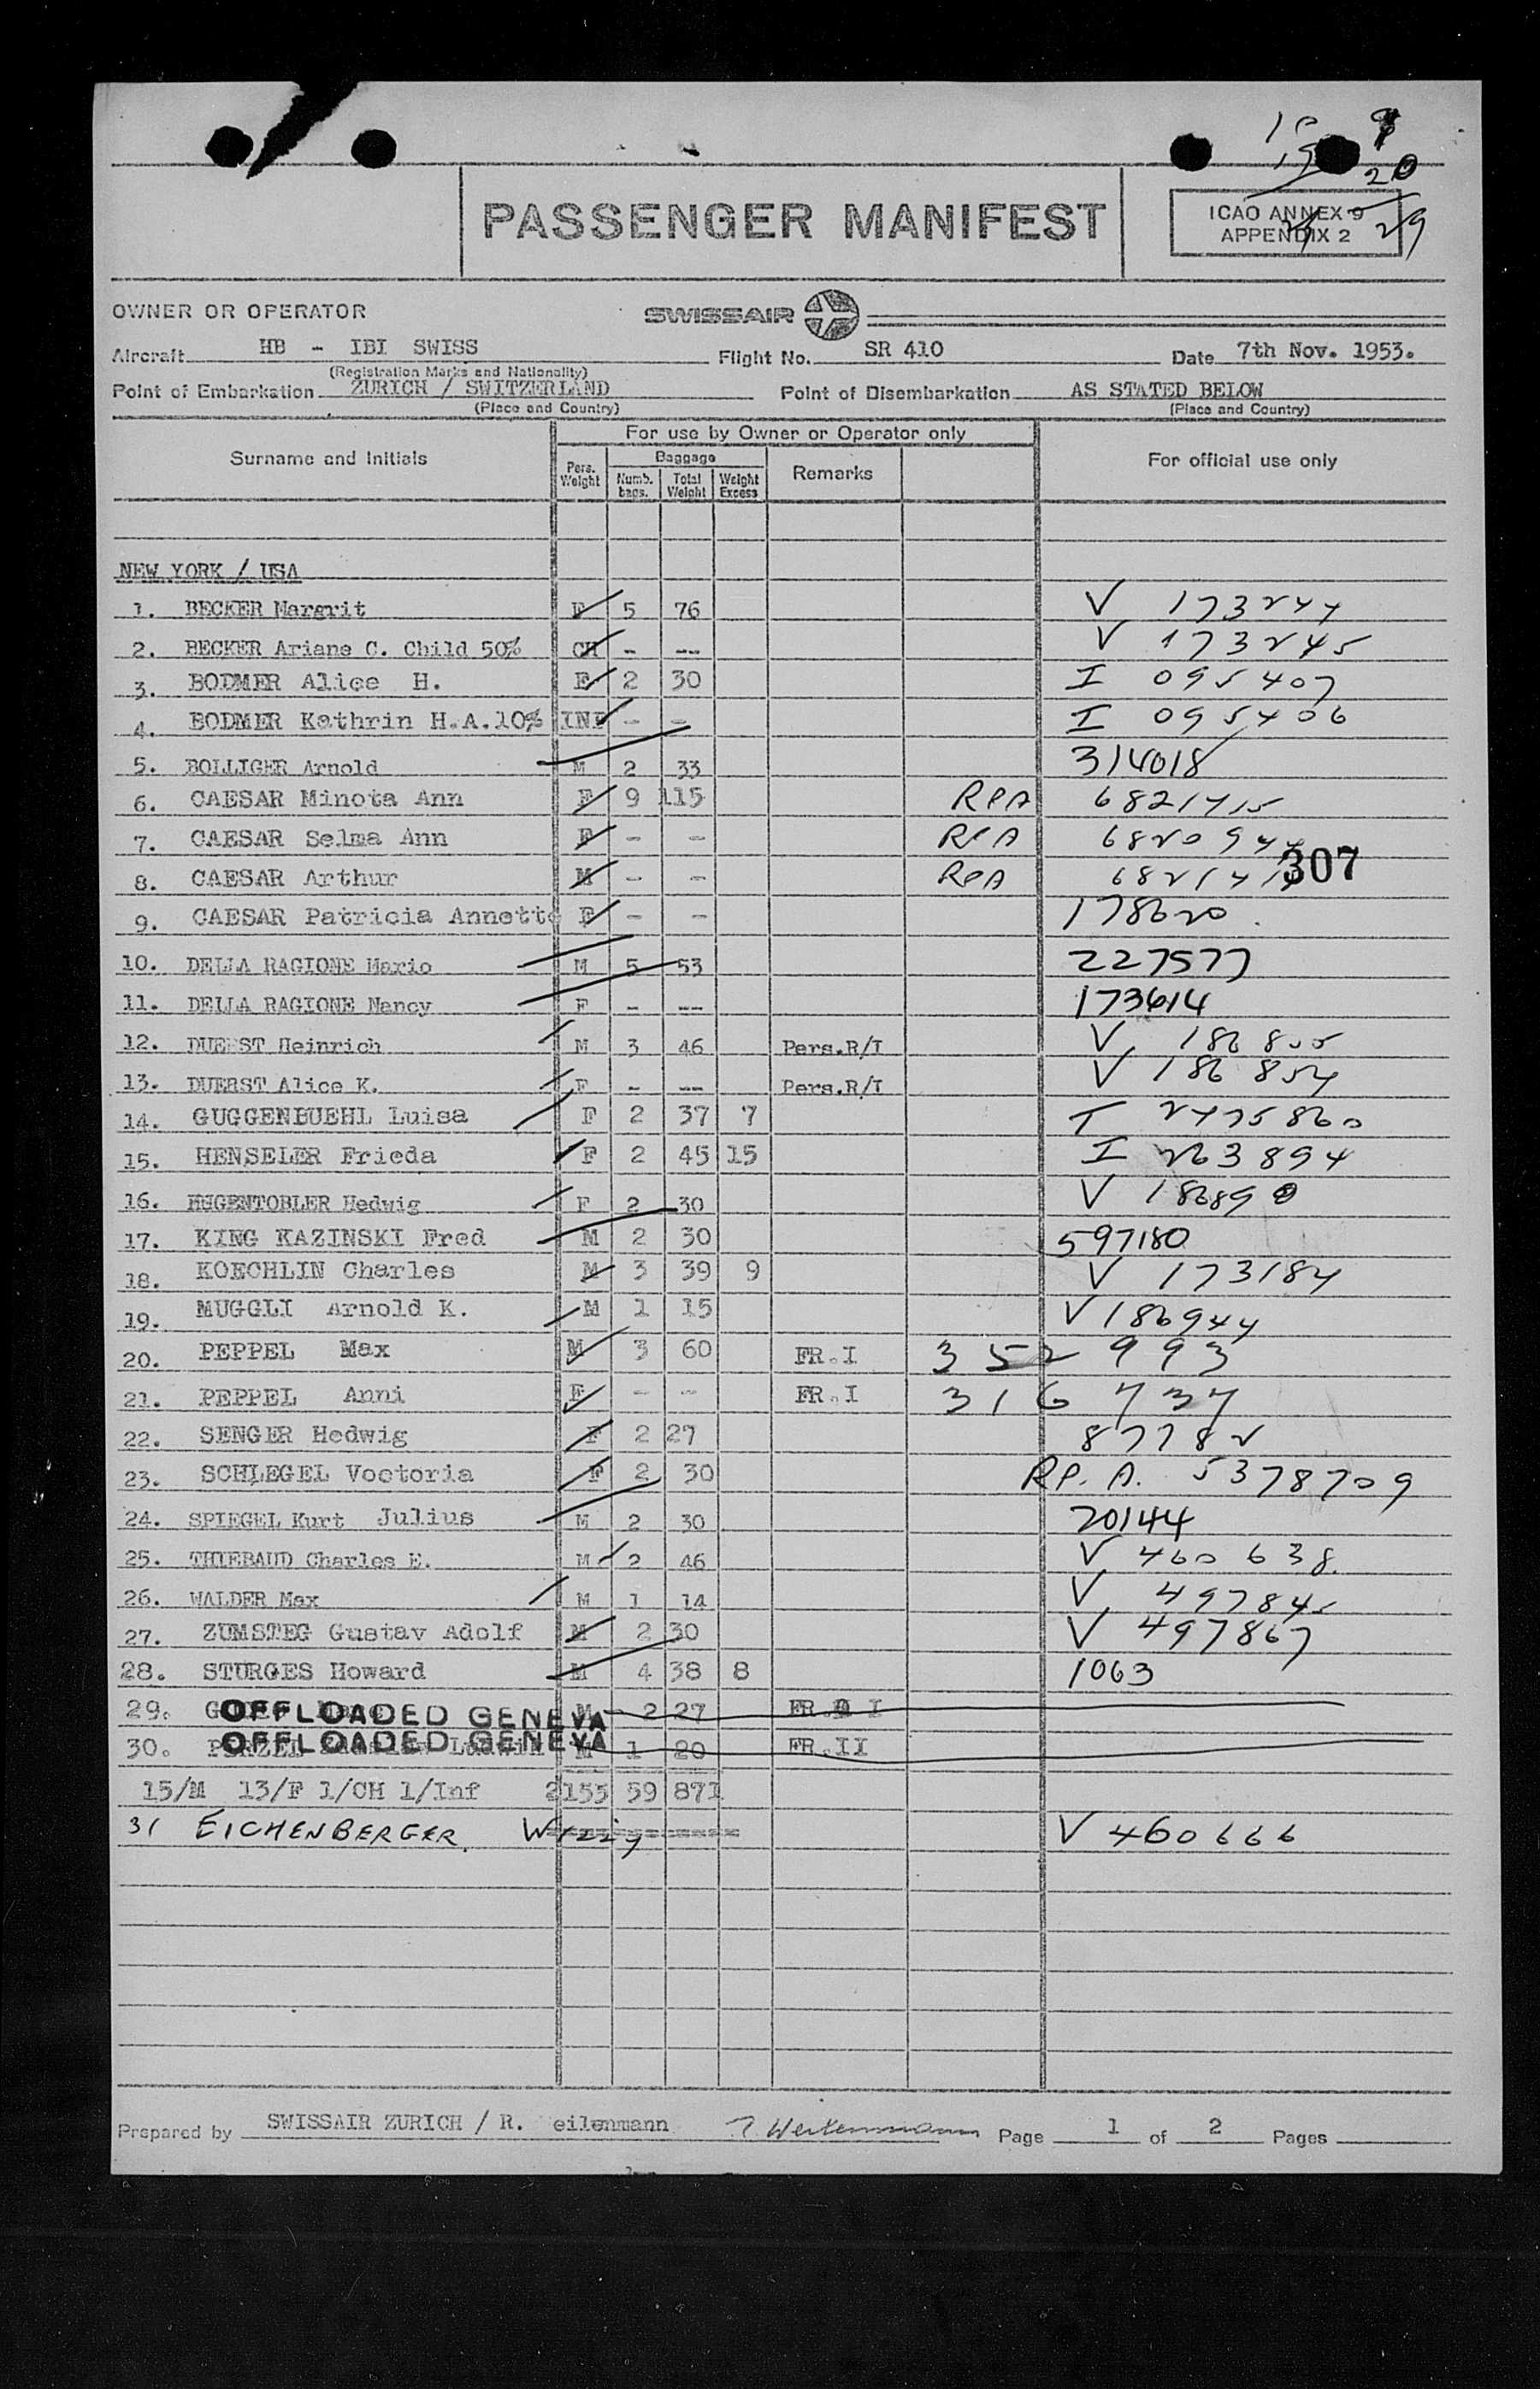 PASSENGER MANIFEST
ICAO ANNEX 9
APPENDIX 2
20
29
OWNER OR OPERATOR SWISSAIR
Aircraft HB - IBI SWISS Flight No. SR 410 Date 7th Nov. 1953.
(Registration Marks and Nationality)
Point of Embarkation ZURICH / SWITZERLAND Point of Disembarkation AS STATED BELOW
(Place and Country) (Place and Country)
For use by Owner or Operator only
Surname and Initials Pers. Weight Baggage Numb. bags. Total Weight Weight Excess Remarks For official use only
NEW YORK / USA
1. BECKER Margrit F 5 76 V 173244
2. BECKER Ariane C. Child 50% CH - -- V 173245
3. BODMER Alice H. F 2 30 I 095407
4. BODMER Kathrin H.A.10% INF - - I 095406
5. BOLLIGER Arnold M 2 33 314018
6. CAESAR Minota Ann F 9 115 RPA 6821415
7. CAESAR Selma Ann F - - RPA
8. CAESAR Arthur M - - RPA
307
9. CAESAR Patricia Annette F - - 178620
10. DELLA RAGIONE Mario M 5 53 227577
11. DELLA RAGIONE Nancy F - -- 173614
12. DUERST Heinrich M 3 46 Pers.R/I V 186855
13. DUERST Alice K. F - -- Pers.R/I V 186854
14. GUGGENBUEHL Luisa F 2 37 7 I 2475860
15. HENSELER Frieda F 2 45 15 I 263894
16. HUGENTOBLER Hedwig F 2 30 V 186890
17. KING KAZINSKI Fred M 2 30 597180
18. KOECHLIN Charles M 3 39 9 V 173184
19. MUGGLI Arnold K. M 1 15 V 186944
20. PEPPEL Max M 3 60 FR.I 352993
21. PEPPEL Anni F - - FR.I 316737
22. SENGER Hedwig F 2 27 87782
23. SCHLEGEL Voctoria F 2 30 RP.A. 5378709
24. SPIEGEL Kurt Julius M 2 30 20144
25. THIEBAUD Charles E. M 2 46 V 460638.
26. WALDER Max M 1 14 V 497845
27. ZUMSTEG Gustav Adolf M 2 30 V 497867
28. STURGES Howard M 4 38 8 1063
29. OFFLOADED GENEVA M 2 27 FR. I
30. OFFLOADED GENEVA M 1 20 FR.II
15/M 13/F 1/CH 1/Inf 2155 59 871
31 EICHENBERGER V 460666
Prepared by SWISSAIR ZURICH / R. eilenmann Page 1 of 2 Pages